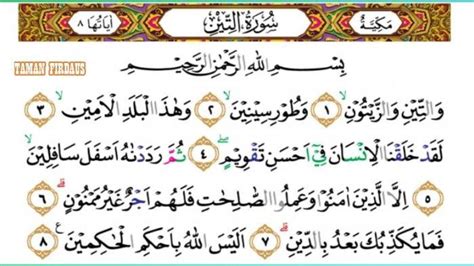 مَكِّيَّةٌ سُوْرَةُ التِّيْنِ اٰيَاتُهَا ٨
TAMAN FIRDAUS
بِسْمِ اللّٰهِ الرَّحْمٰنِ الرَّحِيْمِ
وَالتِّيْنِ وَالزَّيْتُوْنِۙ ١ وَطُوْرِ سِيْنِيْنَۙ ٢ وَهٰذَا الْبَلَدِ الْاَمِيْنِۙ ٣
لَقَدْ خَلَقْنَا الْاِنْسَانَ فِيْٓ اَحْسَنِ تَقْوِيْمٍۖ ٤ ثُمَّ رَدَدْنٰهُ اَسْفَلَ سَافِلِيْنَۙ
٥ اِلَّا الَّذِيْنَ اٰمَنُوْا وَعَمِلُوا الصّٰلِحٰتِ فَلَهُمْ اَجْرٌ غَيْرُ مَمْنُوْنٍۗ ٦
فَمَا يُكَذِّبُكَ بَعْدُ بِالدِّيْنِۗ ٧ اَلَيْسَ اللّٰهُ بِاَحْكَمِ الْحٰكِمِيْنَࣖ ٨